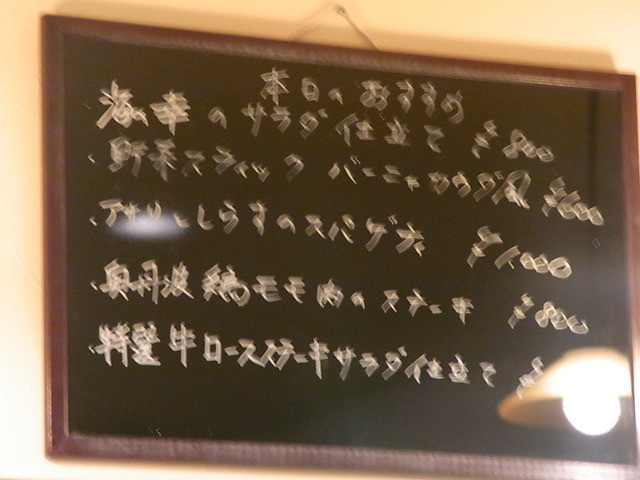 本日のおすすめ
海の幸のサラダ仕立て ¥800
・野菜スティック バーニャカウダ風 ¥600
・アサリとしらすのスパゲティ ¥1000
・奥丹波鶏モモ肉のステーキ ¥800
・特製牛ロースステーキサラダ仕立て ¥